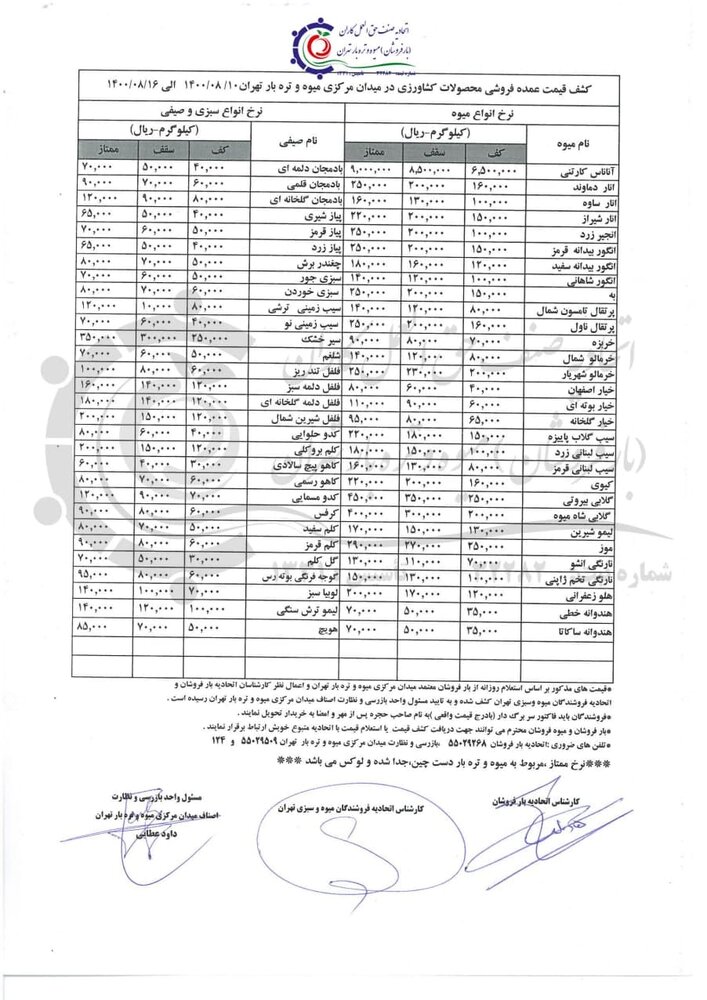 اتحادیه صنف حق العمل کاران
(بارفروشان) میوه و تره بار تهران
کشف قیمت عمده فروشی محصولات کشاورزی در میدان مرکزی میوه و تره بار تهران ۱۴۰۰/۰۸/۱۰ الی ۱۴۰۰/۰۸/۱۶
نرخ انواع میوه نرخ انواع سبزی و صیفی
نام میوه (کیلوگرم-ریال) نام صیفی (کیلوگرم-ریال)
کف سقف ممتاز کف سقف ممتاز
آناناس کارتنی ۶,۵۰۰,۰۰۰ ۸,۵۰۰,۰۰۰ ۹,۰۰۰,۰۰۰ بادمجان دلمه ای ۴۰,۰۰۰ ۵۰,۰۰۰ ۷۰,۰۰۰
انار دماوند ۱۶۰,۰۰۰ ۲۰۰,۰۰۰ ۲۵۰,۰۰۰ بادمجان قلمی ۶۰,۰۰۰ ۷۰,۰۰۰ ۹۰,۰۰۰
انار ساوه ۱۰۰,۰۰۰ ۱۳۰,۰۰۰ ۱۶۰,۰۰۰ بادمجان گلخانه ای ۸۰,۰۰۰ ۹۰,۰۰۰ ۱۲۰,۰۰۰
انار شیراز ۱۵۰,۰۰۰ ۲۰۰,۰۰۰ ۲۲۰,۰۰۰ پیاز شیری ۴۰,۰۰۰ ۵۰,۰۰۰ ۶۵,۰۰۰
انجیر زرد ۱۰۰,۰۰۰ ۲۰۰,۰۰۰ ۲۵۰,۰۰۰ پیاز قرمز ۵۰,۰۰۰ ۶۰,۰۰۰ ۷۰,۰۰۰
انگور بیدانه قرمز ۱۵۰,۰۰۰ ۲۰۰,۰۰۰ ۲۵۰,۰۰۰ پیاز زرد ۴۰,۰۰۰ ۵۰,۰۰۰ ۶۵,۰۰۰
انگور بیدانه سفید ۱۲۰,۰۰۰ ۱۶۰,۰۰۰ ۱۸۰,۰۰۰ چغندر برش ۵۰,۰۰۰ ۷۰,۰۰۰ ۸۰,۰۰۰
انگور شاهانی ۱۰۰,۰۰۰ ۱۲۰,۰۰۰ ۱۴۰,۰۰۰ سبزی جور ۵۰,۰۰۰ ۶۰,۰۰۰ ۷۰,۰۰۰
به ۱۵۰,۰۰۰ ۲۰۰,۰۰۰ ۲۵۰,۰۰۰ سبزی خوردن ۶۰,۰۰۰ ۷۰,۰۰۰ ۸۰,۰۰۰
پرتقال تامسون شمال ۸۰,۰۰۰ ۱۲۰,۰۰۰ ۱۴۰,۰۰۰ سیب زمینی ترشی ۸۰,۰۰۰ ۱۰,۰۰۰ ۱۲۰,۰۰۰
پرتقال ناول ۱۶۰,۰۰۰ ۲۰۰,۰۰۰ ۲۵۰,۰۰۰ سیب زمینی نو ۴۰,۰۰۰ ۶۰,۰۰۰ ۷۰,۰۰۰
خربزه ۷۰,۰۰۰ ۸۰,۰۰۰ ۹۰,۰۰۰ سیر خشک ۲۵۰,۰۰۰ ۳۰۰,۰۰۰ ۳۵۰,۰۰۰
خرمالو شمال ۸۰,۰۰۰ ۱۲۰,۰۰۰ ۱۴۰,۰۰۰ شلغم ۵۰,۰۰۰ ۶۰,۰۰۰ ۷۰,۰۰۰
خرمالو شهریار ۲۰۰,۰۰۰ ۲۳۰,۰۰۰ ۲۵۰,۰۰۰ فلفل تند ریز ۶۰,۰۰۰ ۸۰,۰۰۰ ۱۰۰,۰۰۰
خیار اصفهان ۴۰,۰۰۰ ۶۰,۰۰۰ ۸۰,۰۰۰ فلفل دلمه سبز ۱۲۰,۰۰۰ ۱۴۰,۰۰۰ ۱۶۰,۰۰۰
خیار بوته ای ۶۰,۰۰۰ ۹۰,۰۰۰ ۱۱۰,۰۰۰ فلفل دلمه گلخانه ای ۱۲۰,۰۰۰ ۱۴۰,۰۰۰ ۱۸۰,۰۰۰
خیار گلخانه ۶۵,۰۰۰ ۸۰,۰۰۰ ۹۵,۰۰۰ فلفل شیرین شمال ۱۲۰,۰۰۰ ۱۵۰,۰۰۰ ۲۰۰,۰۰۰
سیب گلاب پاییزه ۱۵۰,۰۰۰ ۱۸۰,۰۰۰ ۲۲۰,۰۰۰ کدو حلوایی ۴۰,۰۰۰ ۶۰,۰۰۰ ۸۰,۰۰۰
سیب لبنانی زرد ۱۰۰,۰۰۰ ۱۵۰,۰۰۰ ۱۸۰,۰۰۰ کلم بروکلی ۱۲۰,۰۰۰ ۱۵۰,۰۰۰ ۲۰۰,۰۰۰
سیب لبنانی قرمز ۸۰,۰۰۰ ۱۳۰,۰۰۰ ۱۶۰,۰۰۰ کاهو پیچ سالادی ۳۰,۰۰۰ ۴۰,۰۰۰ ۶۰,۰۰۰
کیوی ۱۶۰,۰۰۰ ۲۰۰,۰۰۰ ۲۲۰,۰۰۰ کاهو رسمی ۶۰,۰۰۰ ۷۰,۰۰۰ ۸۰,۰۰۰
گلابی بیروتی ۲۵۰,۰۰۰ ۳۵۰,۰۰۰ ۴۵۰,۰۰۰ کدو مسمایی ۷۰,۰۰۰ ۹۰,۰۰۰ ۱۲۰,۰۰۰
گلابی شاه میوه ۲۰۰,۰۰۰ ۳۰۰,۰۰۰ ۴۰۰,۰۰۰ کرفس ۶۰,۰۰۰ ۸۰,۰۰۰ ۹۰,۰۰۰
لیمو شیرین ۱۳۰,۰۰۰ ۱۵۰,۰۰۰ ۱۷۰,۰۰۰ کلم سفید ۵۰,۰۰۰ ۷۰,۰۰۰ ۸۰,۰۰۰
موز ۲۵۰,۰۰۰ ۲۷۰,۰۰۰ ۲۹۰,۰۰۰ کلم قرمز ۶۰,۰۰۰ ۸۰,۰۰۰ ۹۰,۰۰۰
نارنگی انشو ۷۰,۰۰۰ ۱۱۰,۰۰۰ ۱۳۰,۰۰۰ گل کلم ۳۰,۰۰۰ ۵۰,۰۰۰ ۷۰,۰۰۰
نارنگی تخم ژاپنی ۱۰۰,۰۰۰ ۱۳۰,۰۰۰ ۱۵۰,۰۰۰ گوجه فرنگی بوته رس ۶۰,۰۰۰ ۸۰,۰۰۰ ۹۵,۰۰۰
هلو زعفرانی ۱۲۰,۰۰۰ ۱۷۰,۰۰۰ ۲۰۰,۰۰۰ لوبیا سبز ۷۰,۰۰۰ ۱۰۰,۰۰۰ ۱۴۰,۰۰۰
هندوانه خطی ۳۵,۰۰۰ ۵۰,۰۰۰ ۷۰,۰۰۰ لیمو ترش سنگی ۱۰۰,۰۰۰ ۱۲۰,۰۰۰ ۱۴۰,۰۰۰
هندوانه ساکاتا ۳۵,۰۰۰ ۵۰,۰۰۰ ۷۰,۰۰۰ هویج ۵۰,۰۰۰ ۷۰,۰۰۰ ۸۵,۰۰۰
*قیمت های مذکور بر اساس استعلام روزانه از بار فروشان معتمد میدان مرکزی میوه و تره بار تهران و اعمال نظر کارشناسان اتحادیه بار فروشان و
اتحادیه فروشندگان میوه وسبزی تهران کشف شده و به تایید مسئول واحد بازرسی و نظارت اصناف میدان مرکزی میوه و تره بار تهران رسیده است .
*فروشندگان باید فاکتور سر برگ دار (بادرج قیمت واقعی )به نام صاحب حجره پس از مهر و امضا به خریدار تحویل نمایند .
*بار فروشان و میوه فروشان محترم می توانند جهت دریافت کشف قیمت یا استعلام قیمت با اتحادیه متبوع خویش ارتباط برقرار نمایند .
*تلفن های ضروری :اتحادیه بار فروشان ۵۵۰۲۹۲۶۸ ،بازرسی و نظارت میدان مرکزی میوه و تره بار تهران ۵۵۰۲۹۵۰۹ و ۱۲۴
***نرخ ممتاز ،مربوط به میوه و تره بار دست چین،جدا شده و لوکس می باشد ***
کارشناس اتحادیه بار فروشان
کارشناس اتحادیه فروشندگان میوه و سبزی تهران
مسئول واحد بازرسی و نظارت
اصناف میدان مرکزی میوه و تره بار تهران
داود عطایی